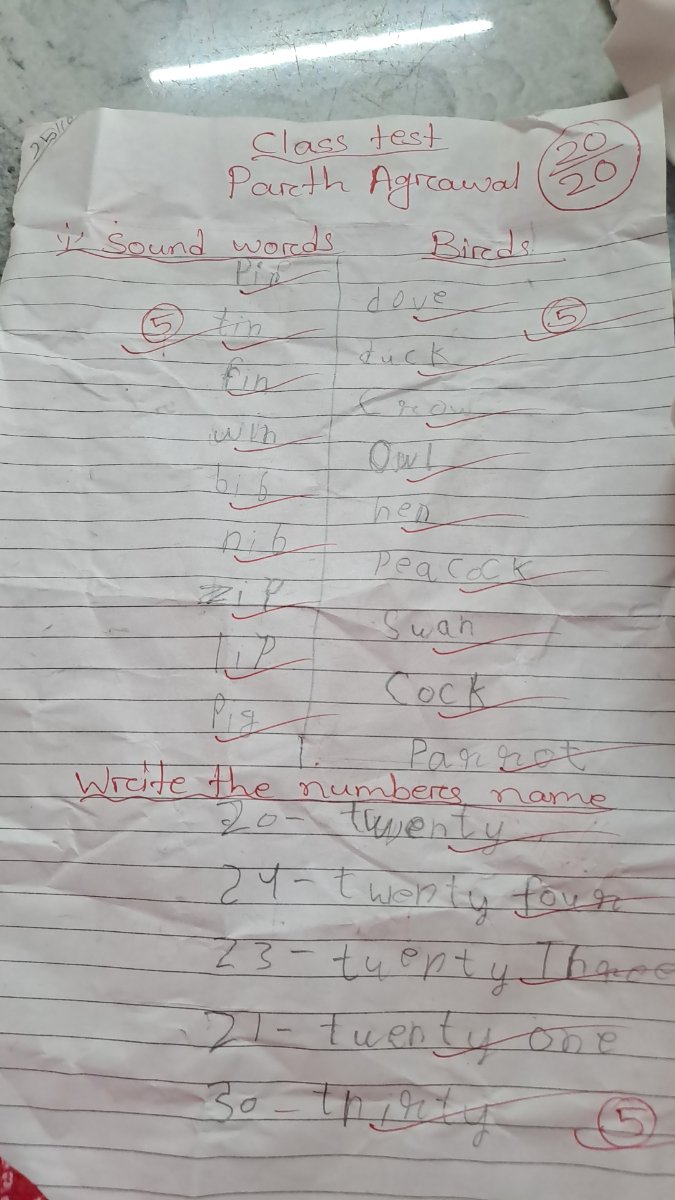 25/10
Class test
Parth Agrawal
20/20
i) Sound words
Birds
Pin
dove
5
tin
5
duck
fin
Crow
win
Owl
bib
hen
nib
Peacock
zip
Swan
lip
Cock
Pig
Parrot
1.
Write the numbers name
20 - twenty
24 - twenty four
23 - twenty Three
21 - twenty one
30 - thirty
5